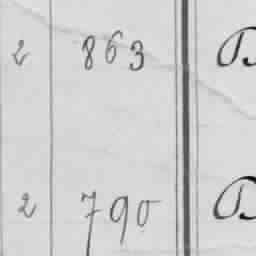 2 863 B
2 790 B